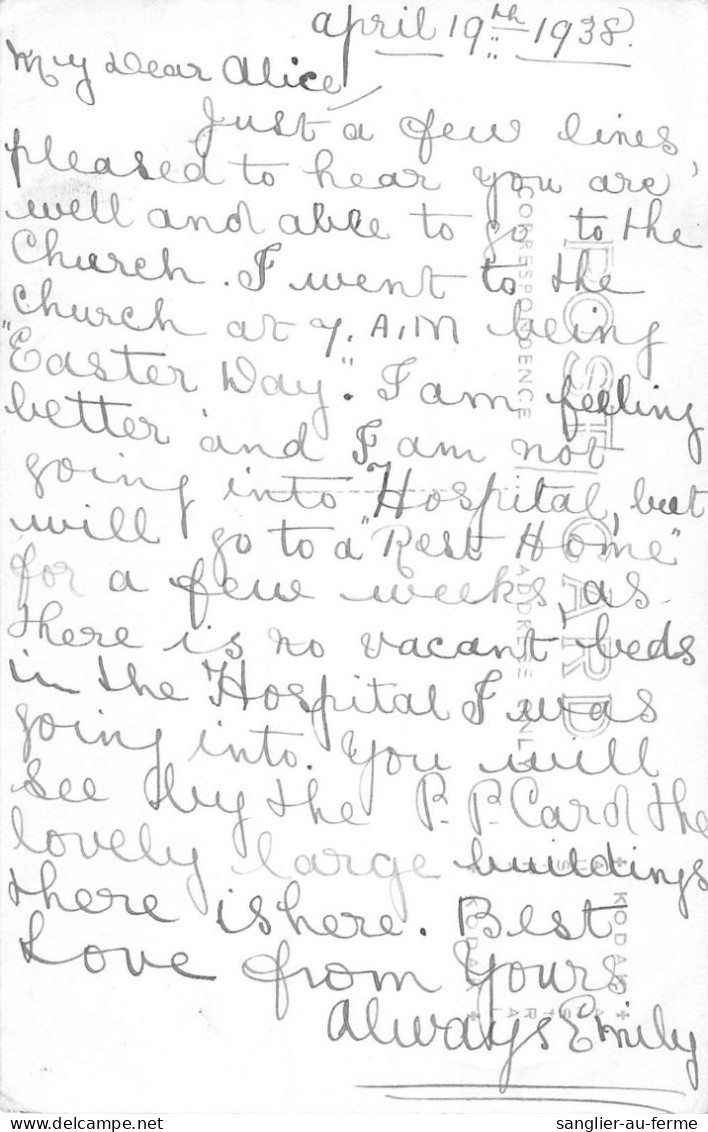 april 19th 1938.
My Dear Alice
Just a few lines,
pleased to hear you are
well and able to go to the
Church. I went to the
church at 7. A.M being
"Easter Day". I am feeling
better and I am not
going into Hospital, but
will go to a "Rest Home"
for a few weeks, as
there is no vacant beds
in the Hospital I was
going into. You will
see by the P.P. Card the
lovely large buildings
there is here. Best
Love from Yours
Always Emily
POST CARD
CORRESPONDENCE
ADDRESS ONLY
KODAK
AUSTRAL
sanglier-au-ferme